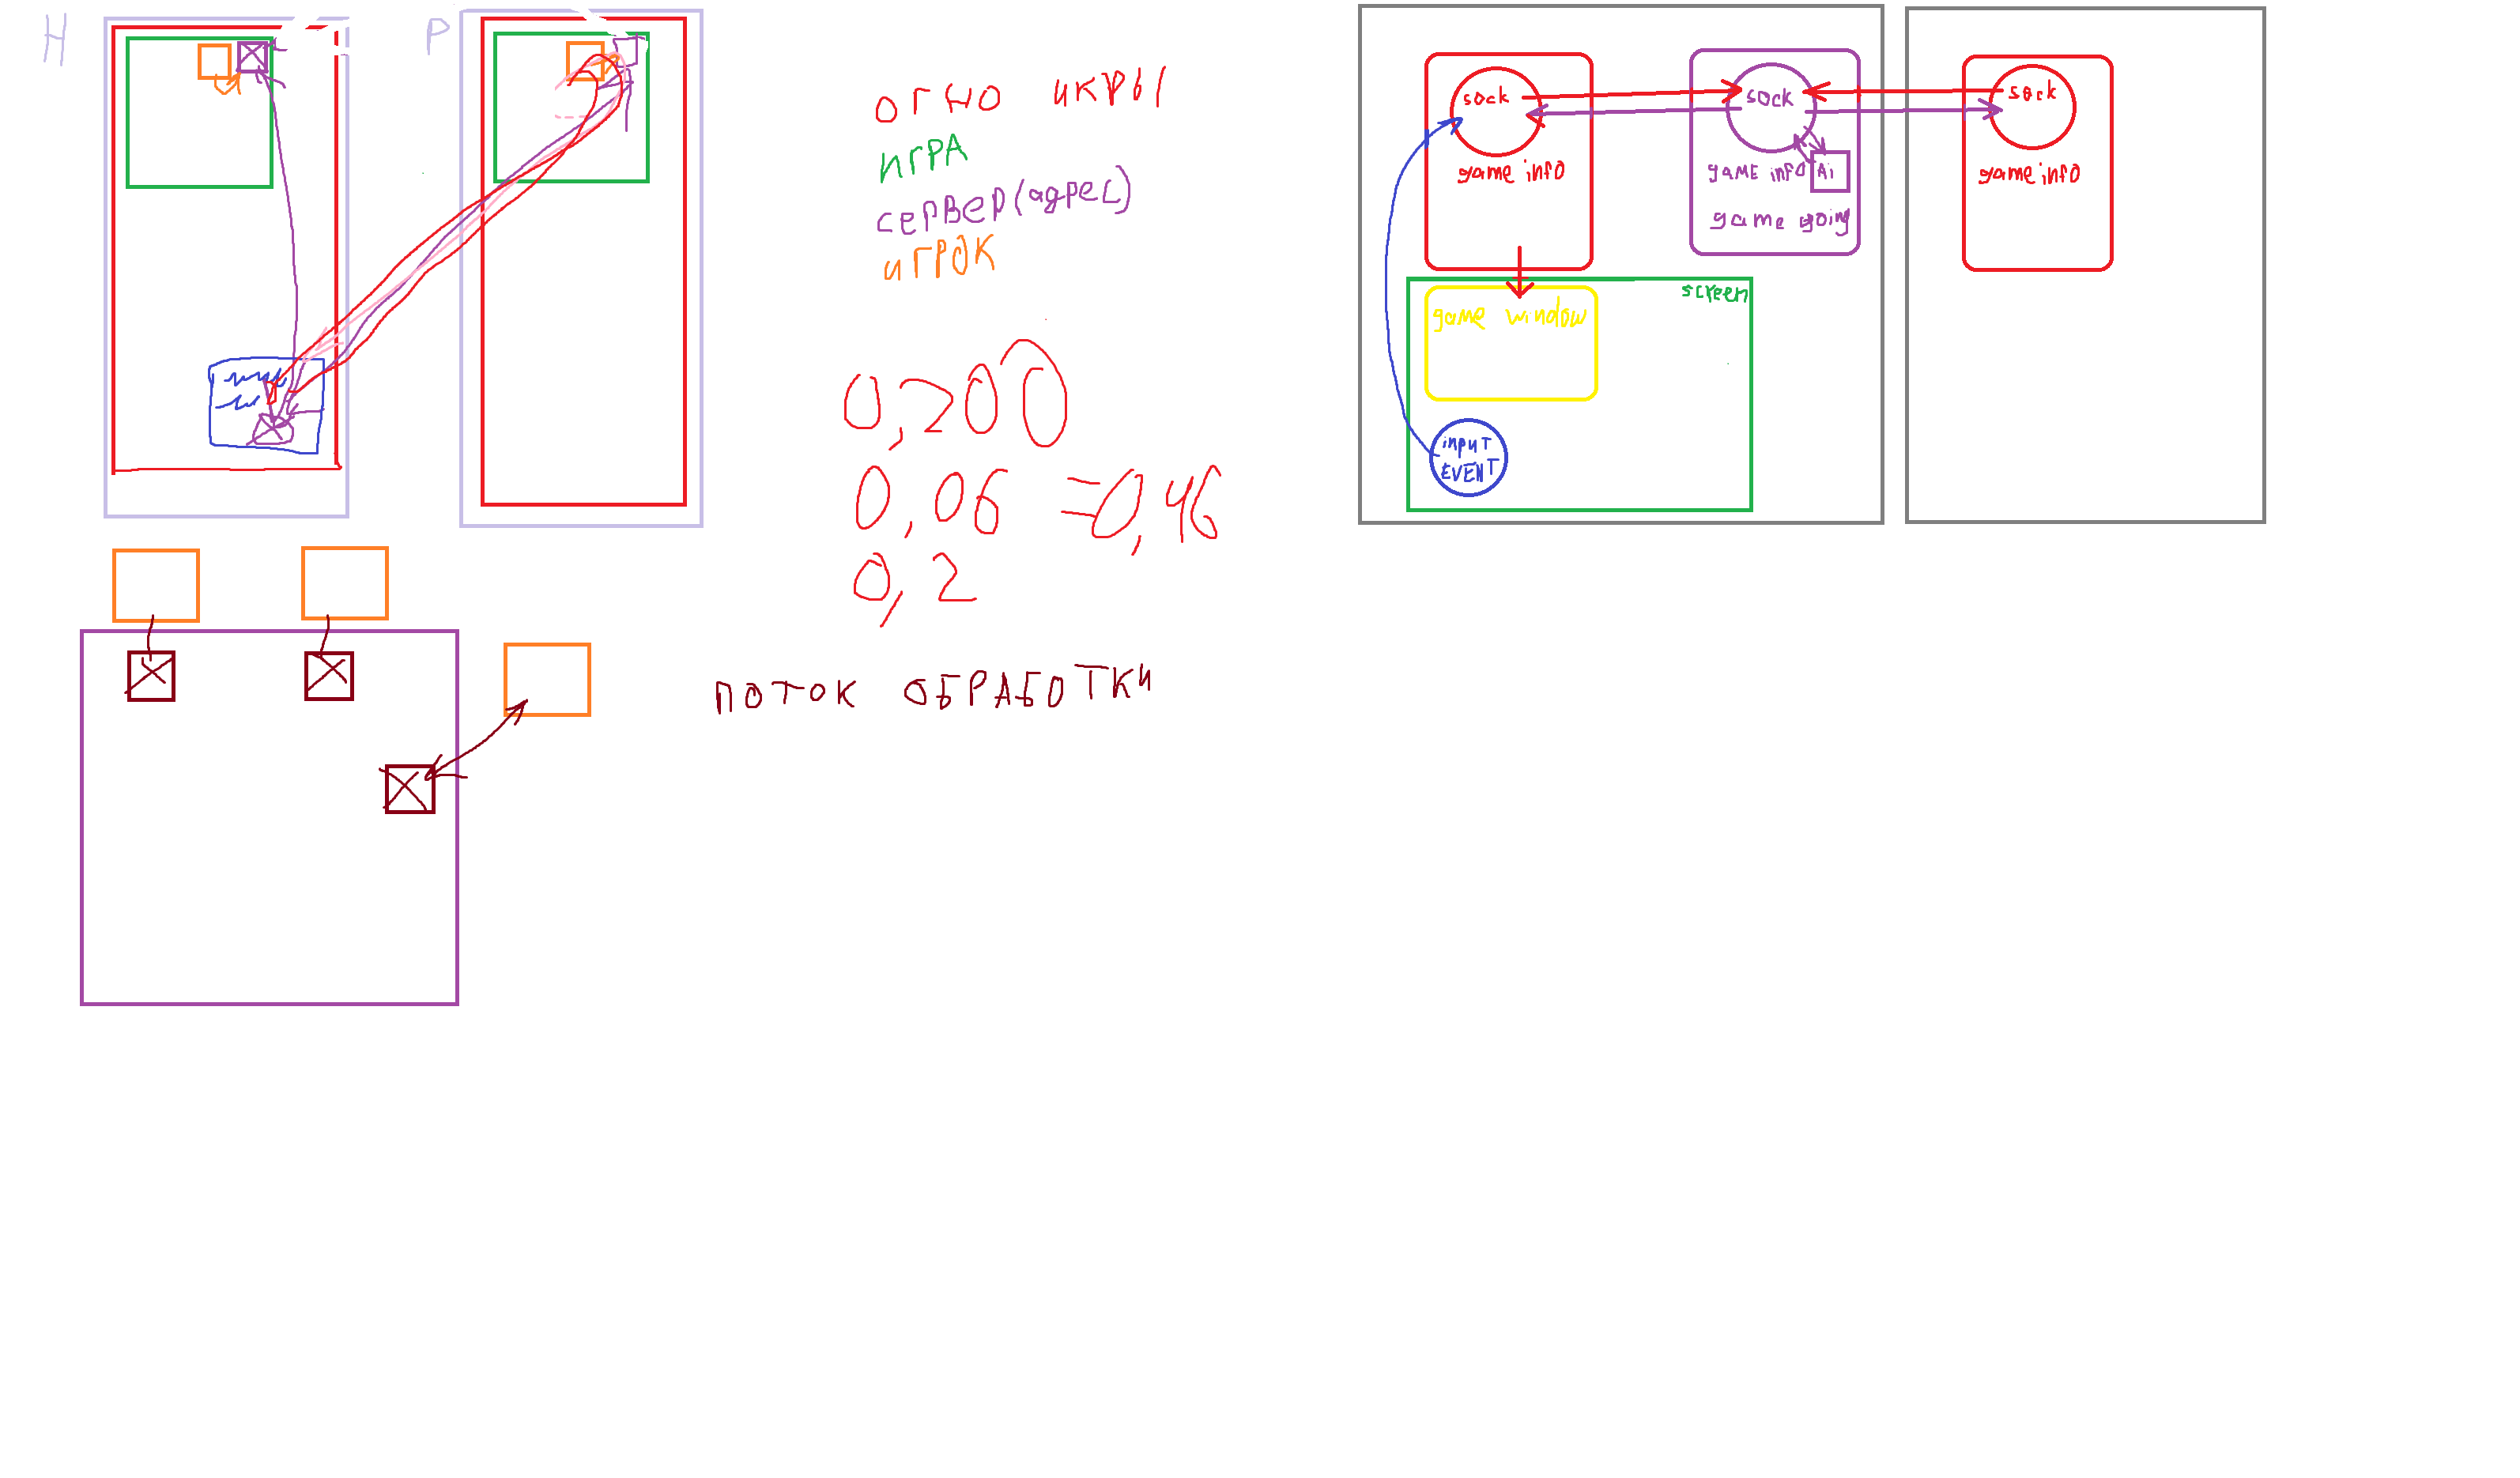 H
P
огно икры
игра
сервер(адрес)
игрок
0,200
0,06 =0,46
0,2
поток обработки
sock
game info
sock
game info
Ai
game going
sock
game info
screen
game window
input
EVENT